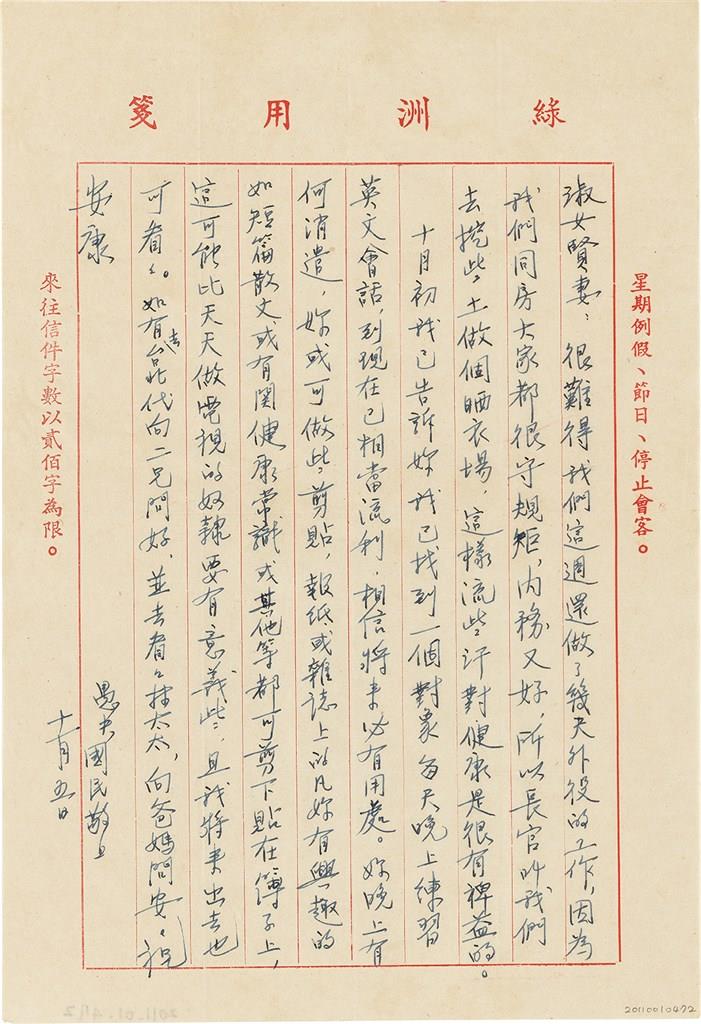 綠洲用箋
星期例假、節日、停止會客。
淑女賢妻：很難得我們這週還做了幾天外役的工作，因為
我們同房大家都很守規矩，內務又好，所以長官叫我們
去挖些土做個晒衣場，這樣流些汗對健康是很有裨益的。
十月初我已告訴妳我已找到一個對象每天晚上練習
英文會話，到現在已相當流利，相信將來必有用處。妳晚上有
何消遣，妳或可做些剪貼，報紙或雜誌上的凡妳有興趣的
如短篇散文或有関健康常識或其他等都可剪下貼在簿子上，
這可能比天天做電視的奴隸要有意義些，且我將來出去也
可看看。如有去台北代向二兄問好，並去看看林太太，向爸媽問安。祝
安康
愚夫國民敬上
十一月五日
來往信件字數以貳佰字為限。
20110010472